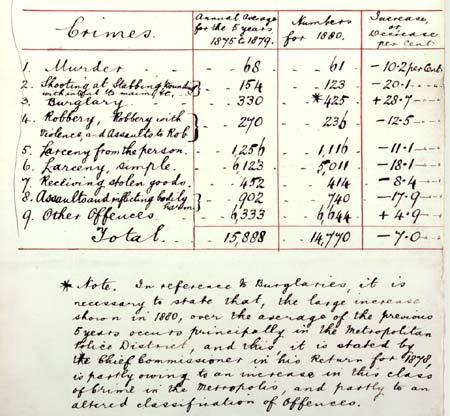 Crimes. Annual Average for the 5 years 1875 to 1879. Numbers for 1880. Increase, or Decrease per Cent.
1. Murder 68 61 -10.2 per Cent.
2. Shooting at Stabbing Wounding with intent to maim, &c, 154 123 -20.1
3. Burglary 330 *425 +28.7
4. Robbery, Robbery with Violence, and Assaults to Rob 270 236 -12.5
5. Larceny from the person. 1,256 1,116 -11.1
6. Larceny, simple. 6,123 5,011 -18.1
7. Receiving stolen goods. 452 414 -8.4
8. Assaults and inflicting bodily harm 902 740 -17.9
9. Other Offences. 6,333 6,644 +4.9
Total. 15,888 14,770 -7.0
* Note. In reference to Burglaries, it is
necessary to state that, the large increase
shown in 1880, over the average of the previous
5 years occurs principally in the Metropolitan
Police District, and this, it is stated by
the Chief Commissioner in his Return for 1878,
is partly owing to an increase in this class
of Crime in the Metropolis, and partly to an
altered classification of Offences.